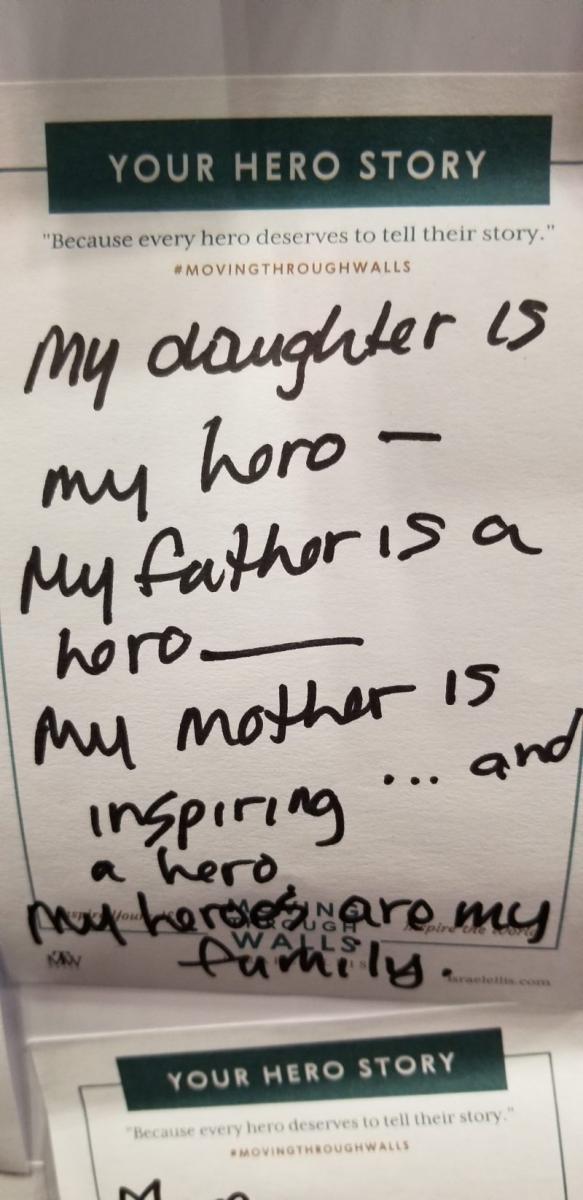 YOUR HERO STORY
"Because every hero deserves to tell their story."
#MOVINGTHROUGHWALLS
My daughter is
my hero —
My father is a
hero —
My mother is
inspiring ... and
a hero
My heroes are my
family.
WALLS
israelellis.com
YOUR HERO STORY
"Because every hero deserves to tell their story."
#MOVINGTHROUGHWALLS